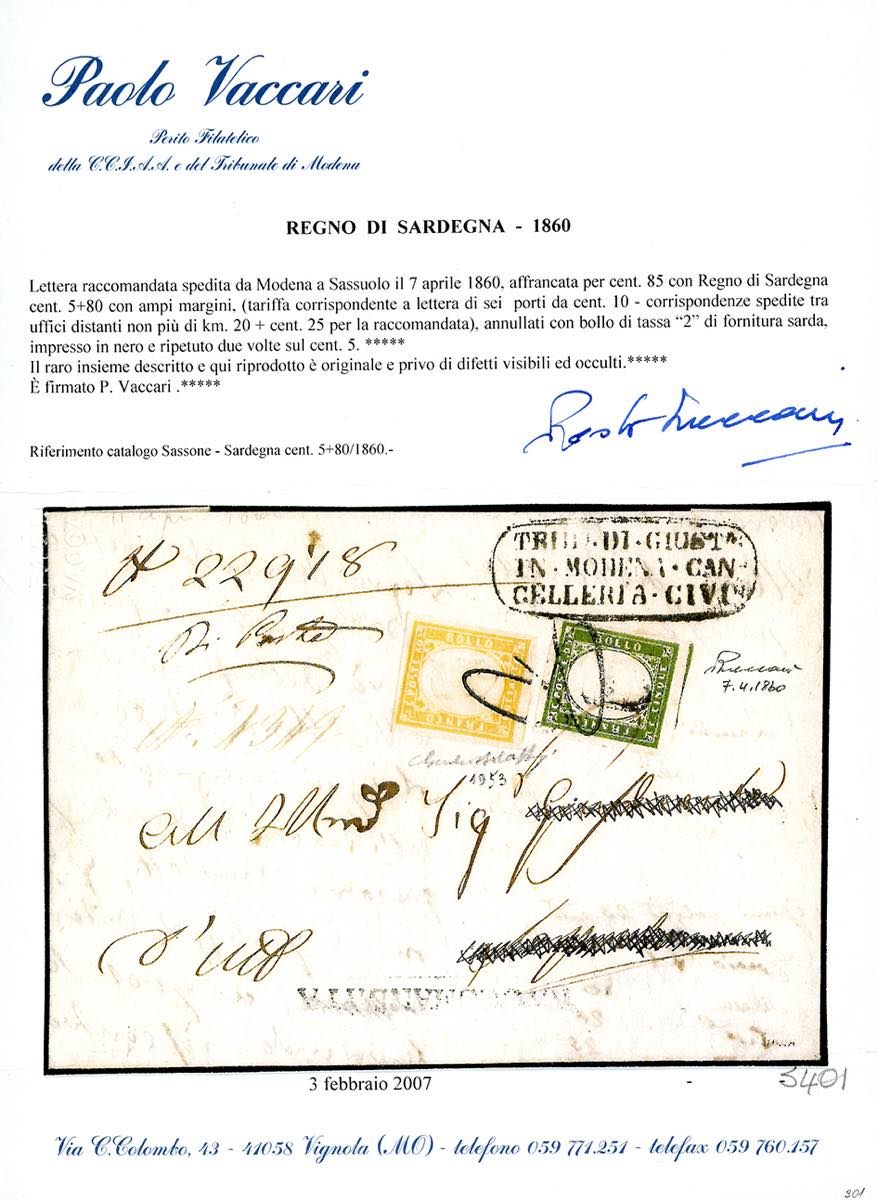 Paolo Vaccari
Perito Filatelico
della C.C.I.A.A. e del Tribunale di Modena
REGNO DI SARDEGNA - 1860
Lettera raccomandata spedita da Modena a Sassuolo il 7 aprile 1860, affrancata per cent. 85 con Regno di Sardegna
cent. 5+80 con ampi margini, (tariffa corrispondente a lettera di sei porti da cent. 10 - corrispondenze spedite tra
uffici distanti non più di km. 20 + cent. 25 per la raccomandata), annullati con bollo di tassa “2” di fornitura sarda,
impresso in nero e ripetuto due volte sul cent. 5. *****
Il raro insieme descritto e qui riprodotto è originale e privo di difetti visibili ed occulti.*****
È firmato P. Vaccari .*****
Riferimento catalogo Sassone - Sardegna cent. 5+80/1860.-
TRIB · DI · GIUST
IN · MODENA · CAN-
CELLERIA · CIVI
BOLLO
FRANCO
BOLLO
FRANCO
7.4.1860
1953
Sig
3 febbraio 2007 -
5401
Via C.Colombo, 43 - 41058 Vignola (MO) - telefono 059 771.251 - telefax 059 760.157
301